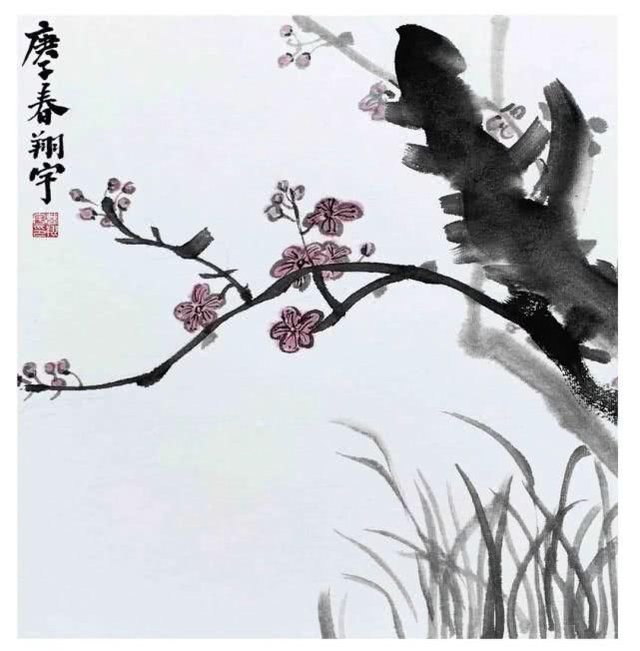 庚子春翔宇